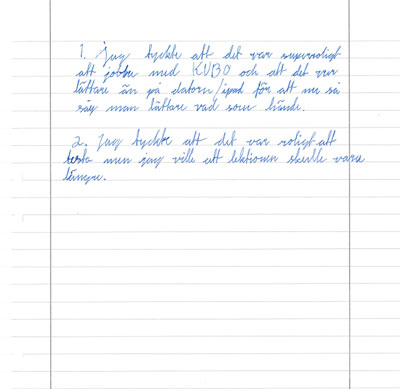 1. Jag tyckte att det var superroligt
att jobba med KUBO och att det var
lättare än på datorn/ipad för att nu så
såg man lättare vad som hände.
2. Jag tyckte att det var roligt att
testa men jag ville att lektionen skulle vara
längre.